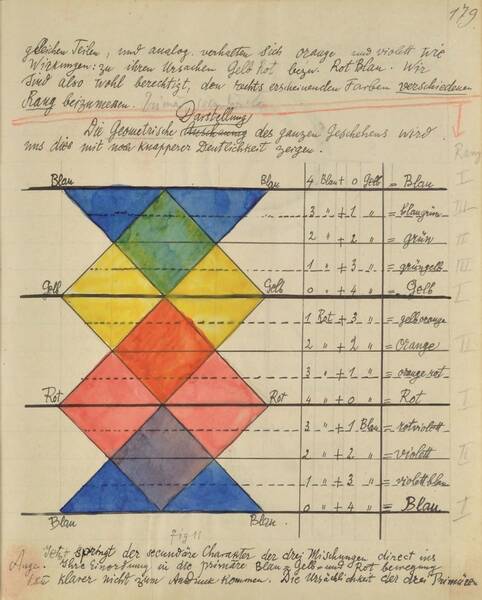 179
gleichen Teilen, und analog verhalten sich orange und violett wie
Wirkungen: zu ihren Ursachen Gelb Rot bezw. Rot Blau. Wir
sind also wohl berechtigt, den rechts erscheinenden Farben verschiedenen
Rang beizumessen.
Darstellung
Die Geometrische des ganzen Geschehens wird
uns dies mit noch knapperer Deutlichkeit zeigen.
Rang
Blau Blau 4 Blau + 0 Gelb = Blau I
3 " + 1 " = blaugrün III
2 " + 2 " = grün II
1 " + 3 " = grüngelb III
Gelb Gelb 0 " + 4 " = Gelb I
1 Rot + 3 " = gelborange
2 " + 2 " = Orange II
3 " + 1 " = orangerot
Rot Rot 4 " + 0 " = Rot I
3 " + 1 Blau = rotviolett
2 " + 2 " = violett II
1 " + 3 " = violettblau
Blau Blau 0 " + 4 " = Blau I
Fig 11
Jetzt springt der secundäre Charakter der drei Mischungen direct ins
Auge. Ihre Einordnung in die primäre Blau = Gelb und Rot bewegung
klarer nicht zum Ausdruck kommen. Die Ursächlichkeit der drei Primären